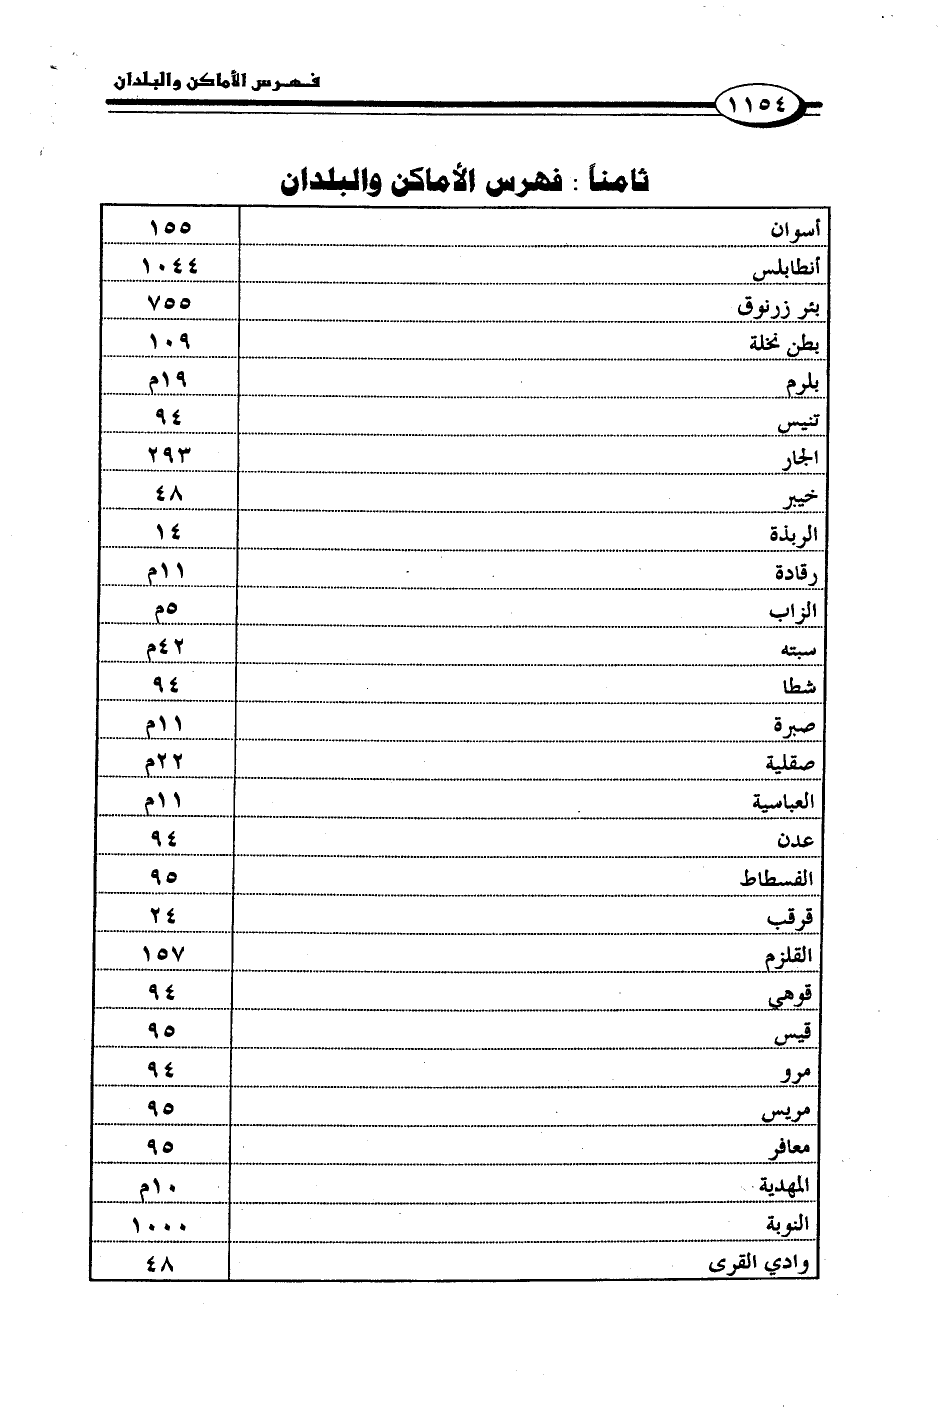 فهرس الأماكن والبلدان
١١٥٤
ثامناً : فهرس الأماكن والبلدان
أسوان ١٥٥
أنطابلس ١٠٤٤
بئر زرنوق ٧٥٥
بطن نخلة ١٠٩
بلرم ١٩م
تنيس ٩٤
الجار ٢٩٣
خيبر ٤٨
الربذة ١٤
رقادة ١١م
الزاب ٥م
سبته ٤٢م
شطا ٩٤
صبرة ١١م
صقلية ٢٢م
العباسية ١١م
عدن ٩٤
الفسطاط ٩٥
قرقب ٢٤
القلزم ١٥٧
قوهي ٩٤
قيس ٩٥
مرو ٩٤
مريس ٩٥
معافر ٩٥
المهدية ١٠م
النوبة ١٠٠٠
وادي القرى ٤٨